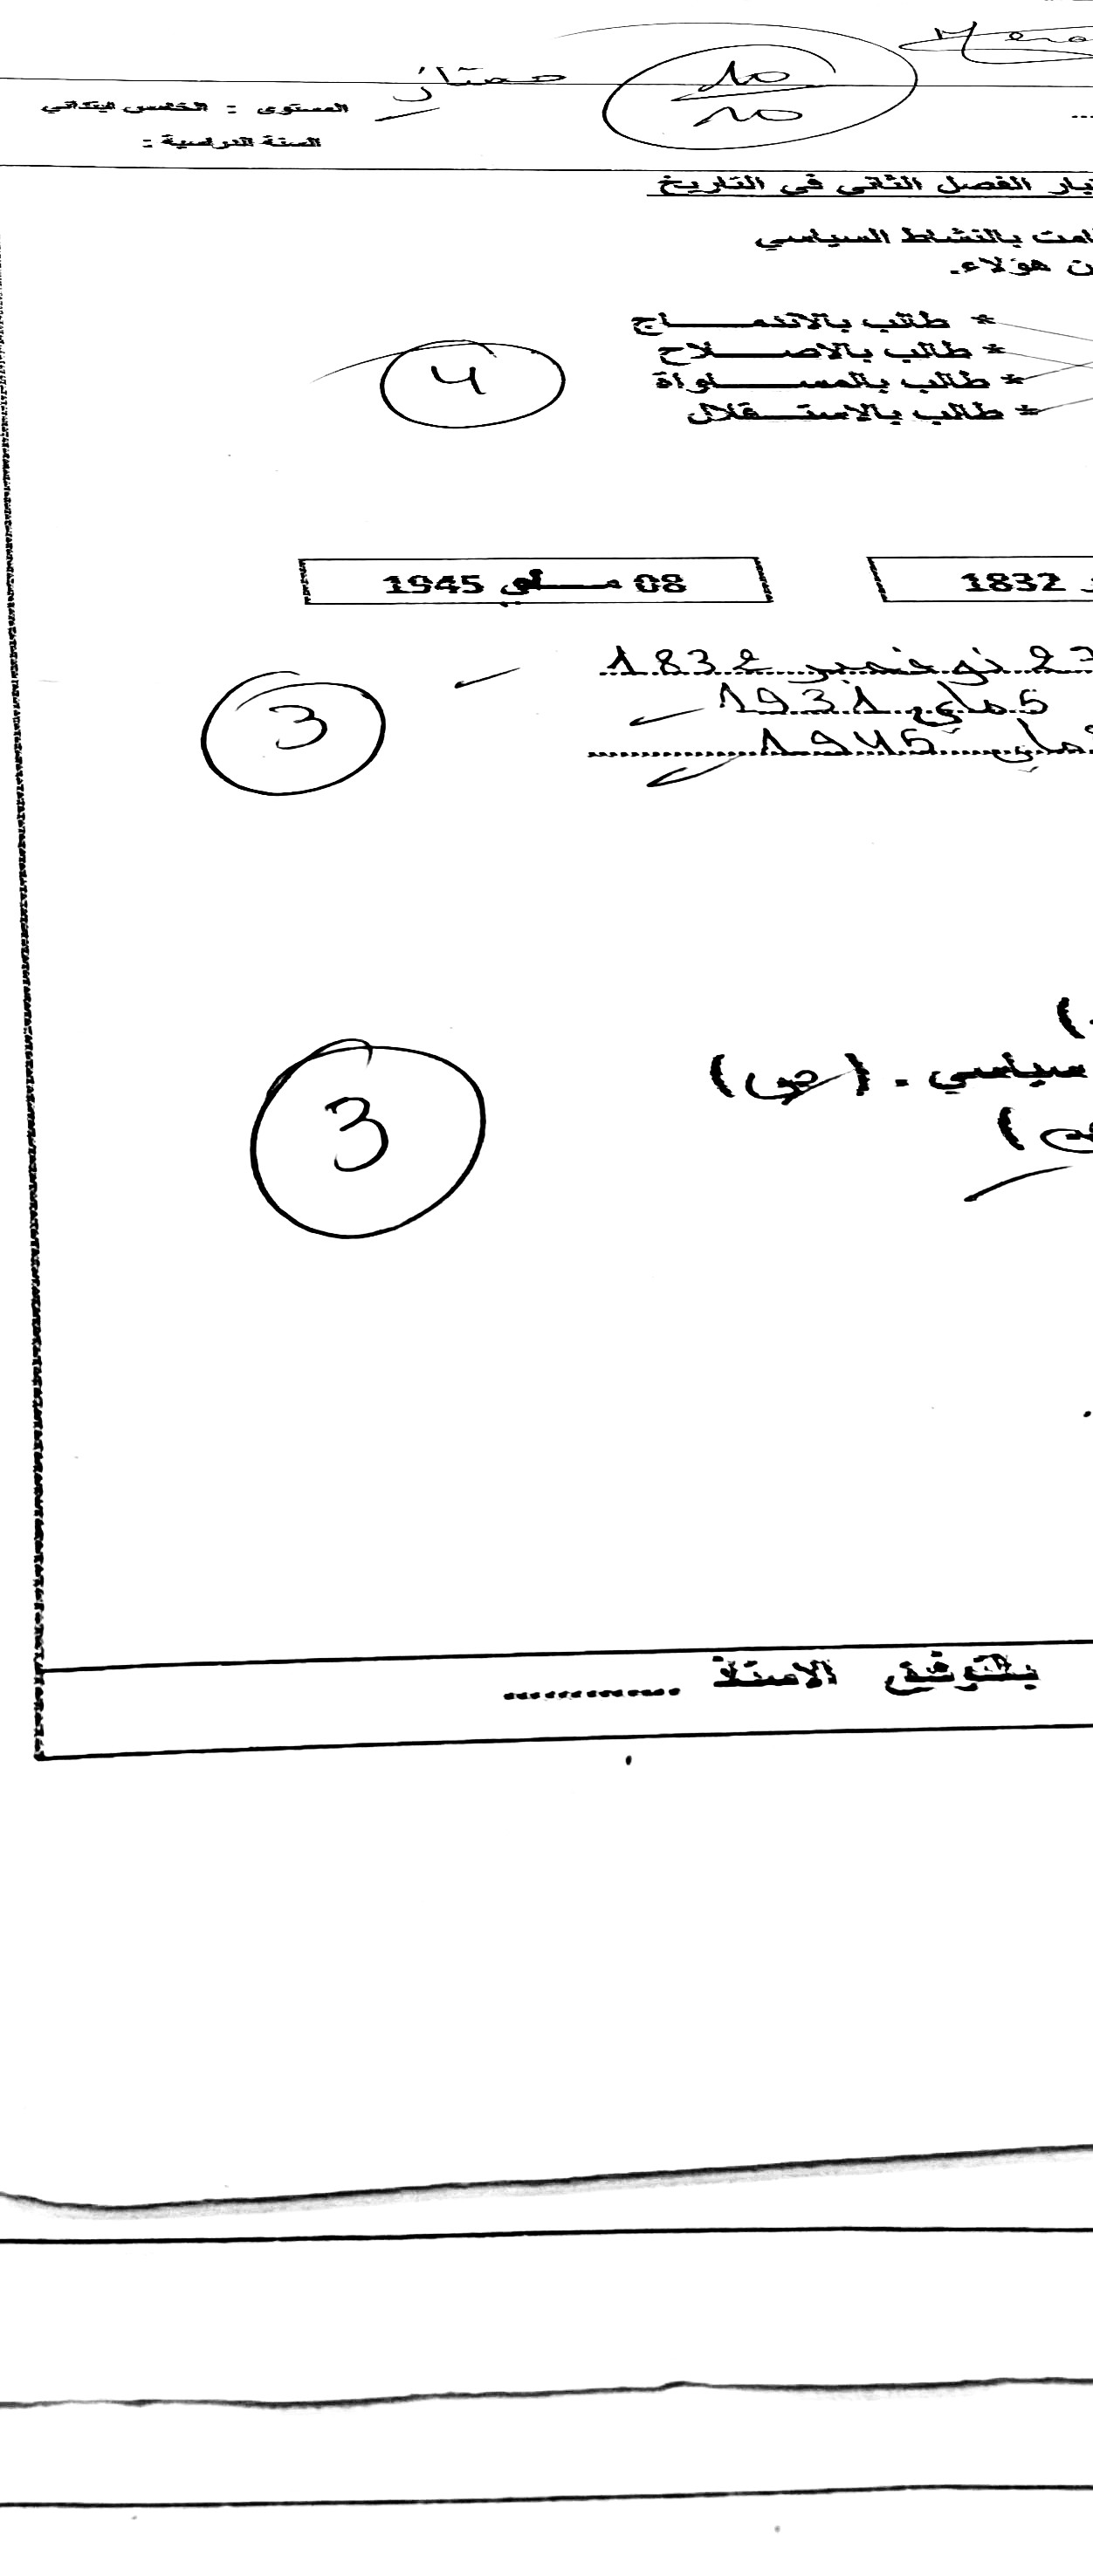 10/10
ممتاز
المستوى : الخامس ابتدائي
السنة الدراسية :
الفصل الثاني في التاريخ
بالنشاط السياسي
هؤلاء.
* طالب بالاندمـــــاج
* طالب بالاصـــــلاح
* طالب بالمســـــاواة
* طالب بالاستـــقلال
4
1832
08 مـــاي 1945
نوفمبر 1832
5 ماي 1931
1945
3
سياسي . (ص)
3
بالتوفيق الاستاذ .............